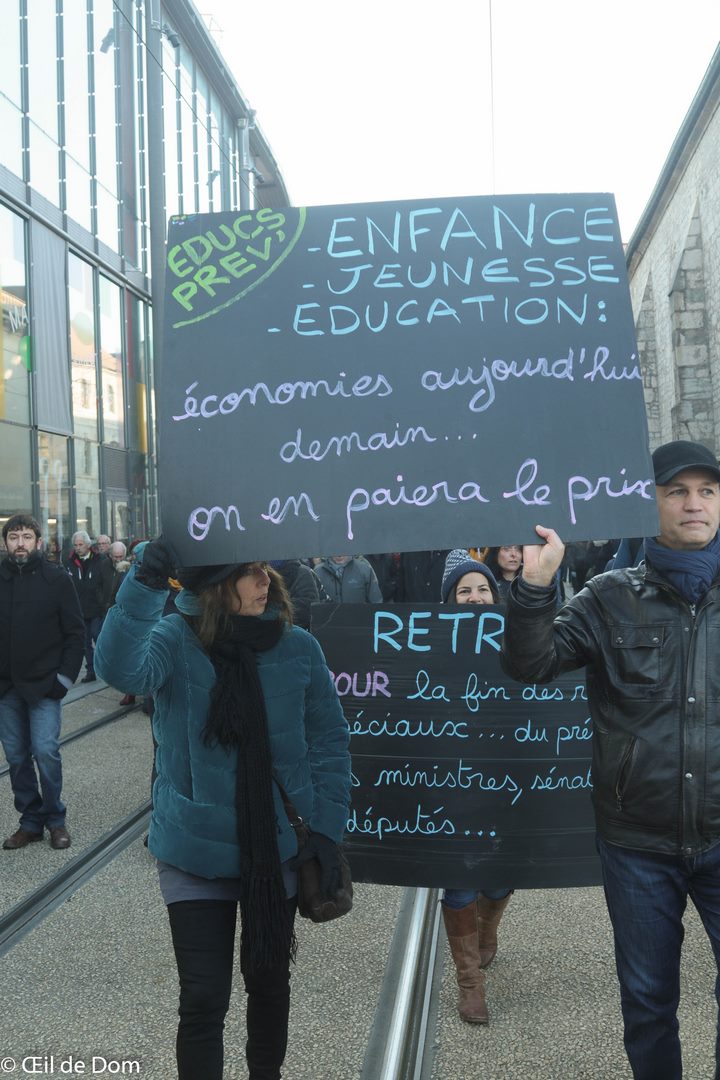 EDUCS
PREV'
-ENFANCE
-JEUNESSE
-EDUCATION:
économies aujourd'hui
demain...
on en paiera le prix
RETR
POUR la fin des r
éciaux... du pré
s ministres, sénat
députés...
© Œil de Dom